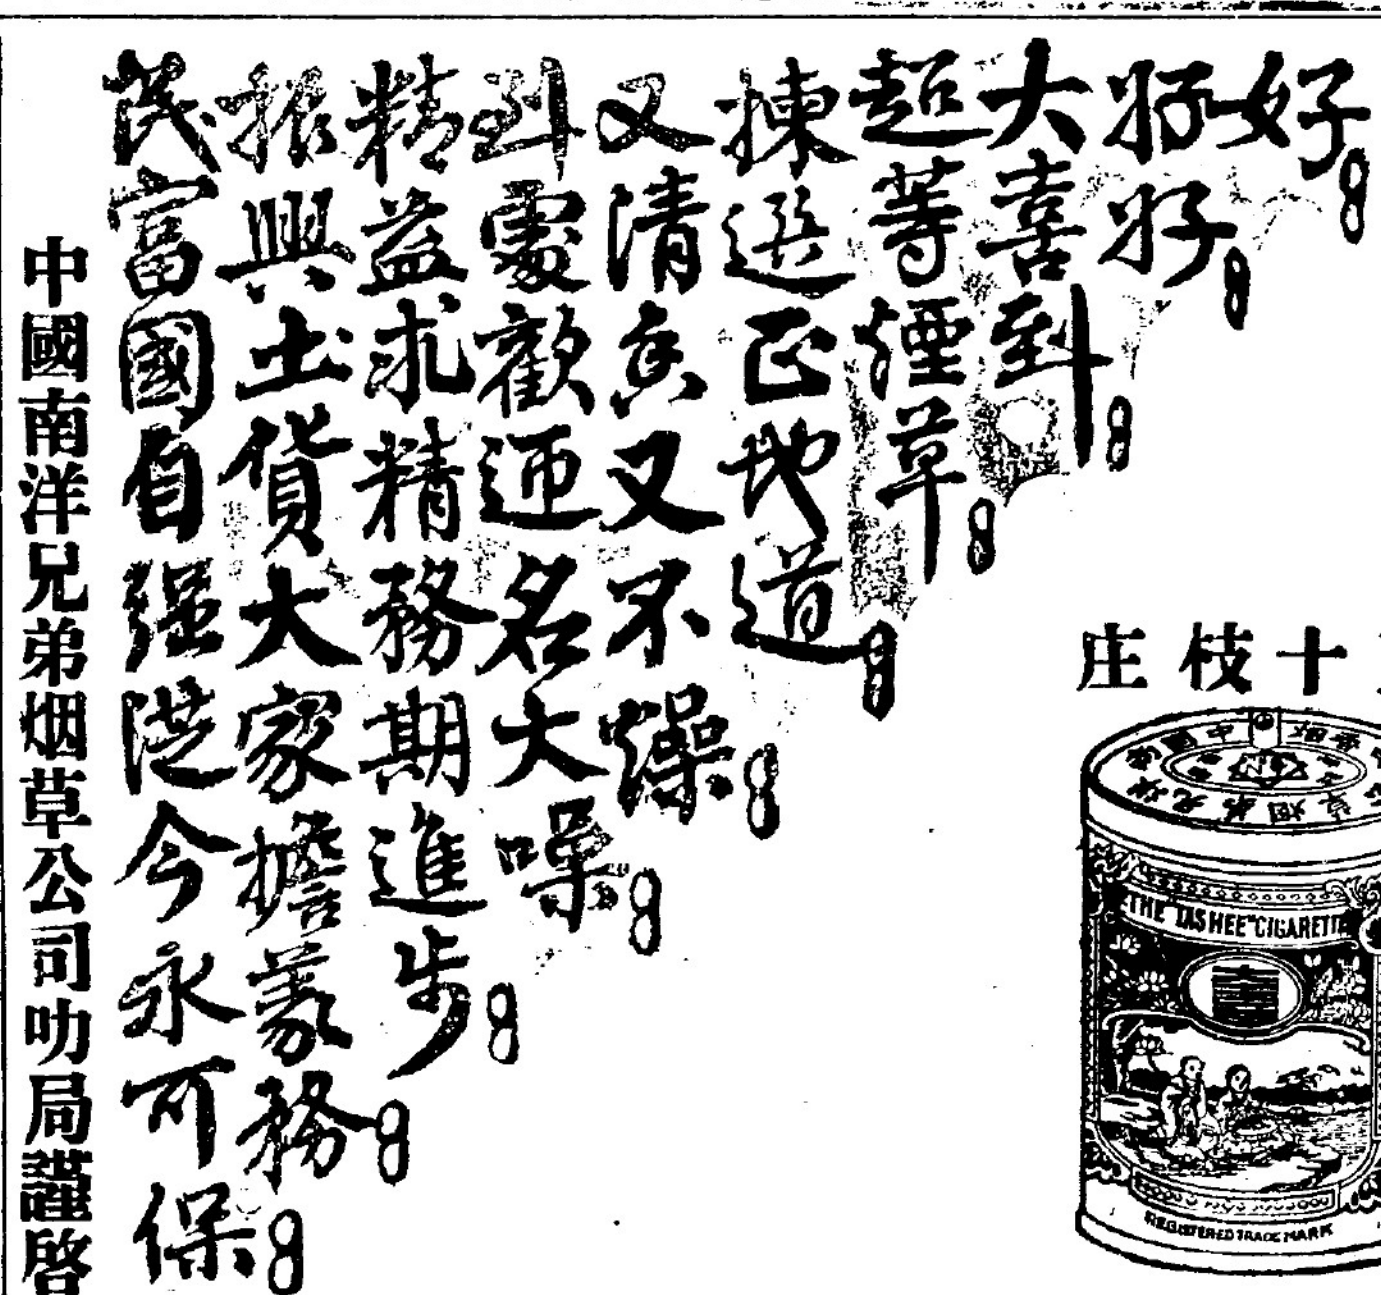 好
好好
大喜到
超等煙草
揀選正地道
又清香又不燥
到處歡迎名大噪
精益求精務期進步
振興土貨大家擔義務
民富國自强從今永可保
中國南洋兄弟烟草公司叻局謹啓
十枝庄
THE "TASHEE" CIGARETTE
喜
REGISTERED TRADE MARK